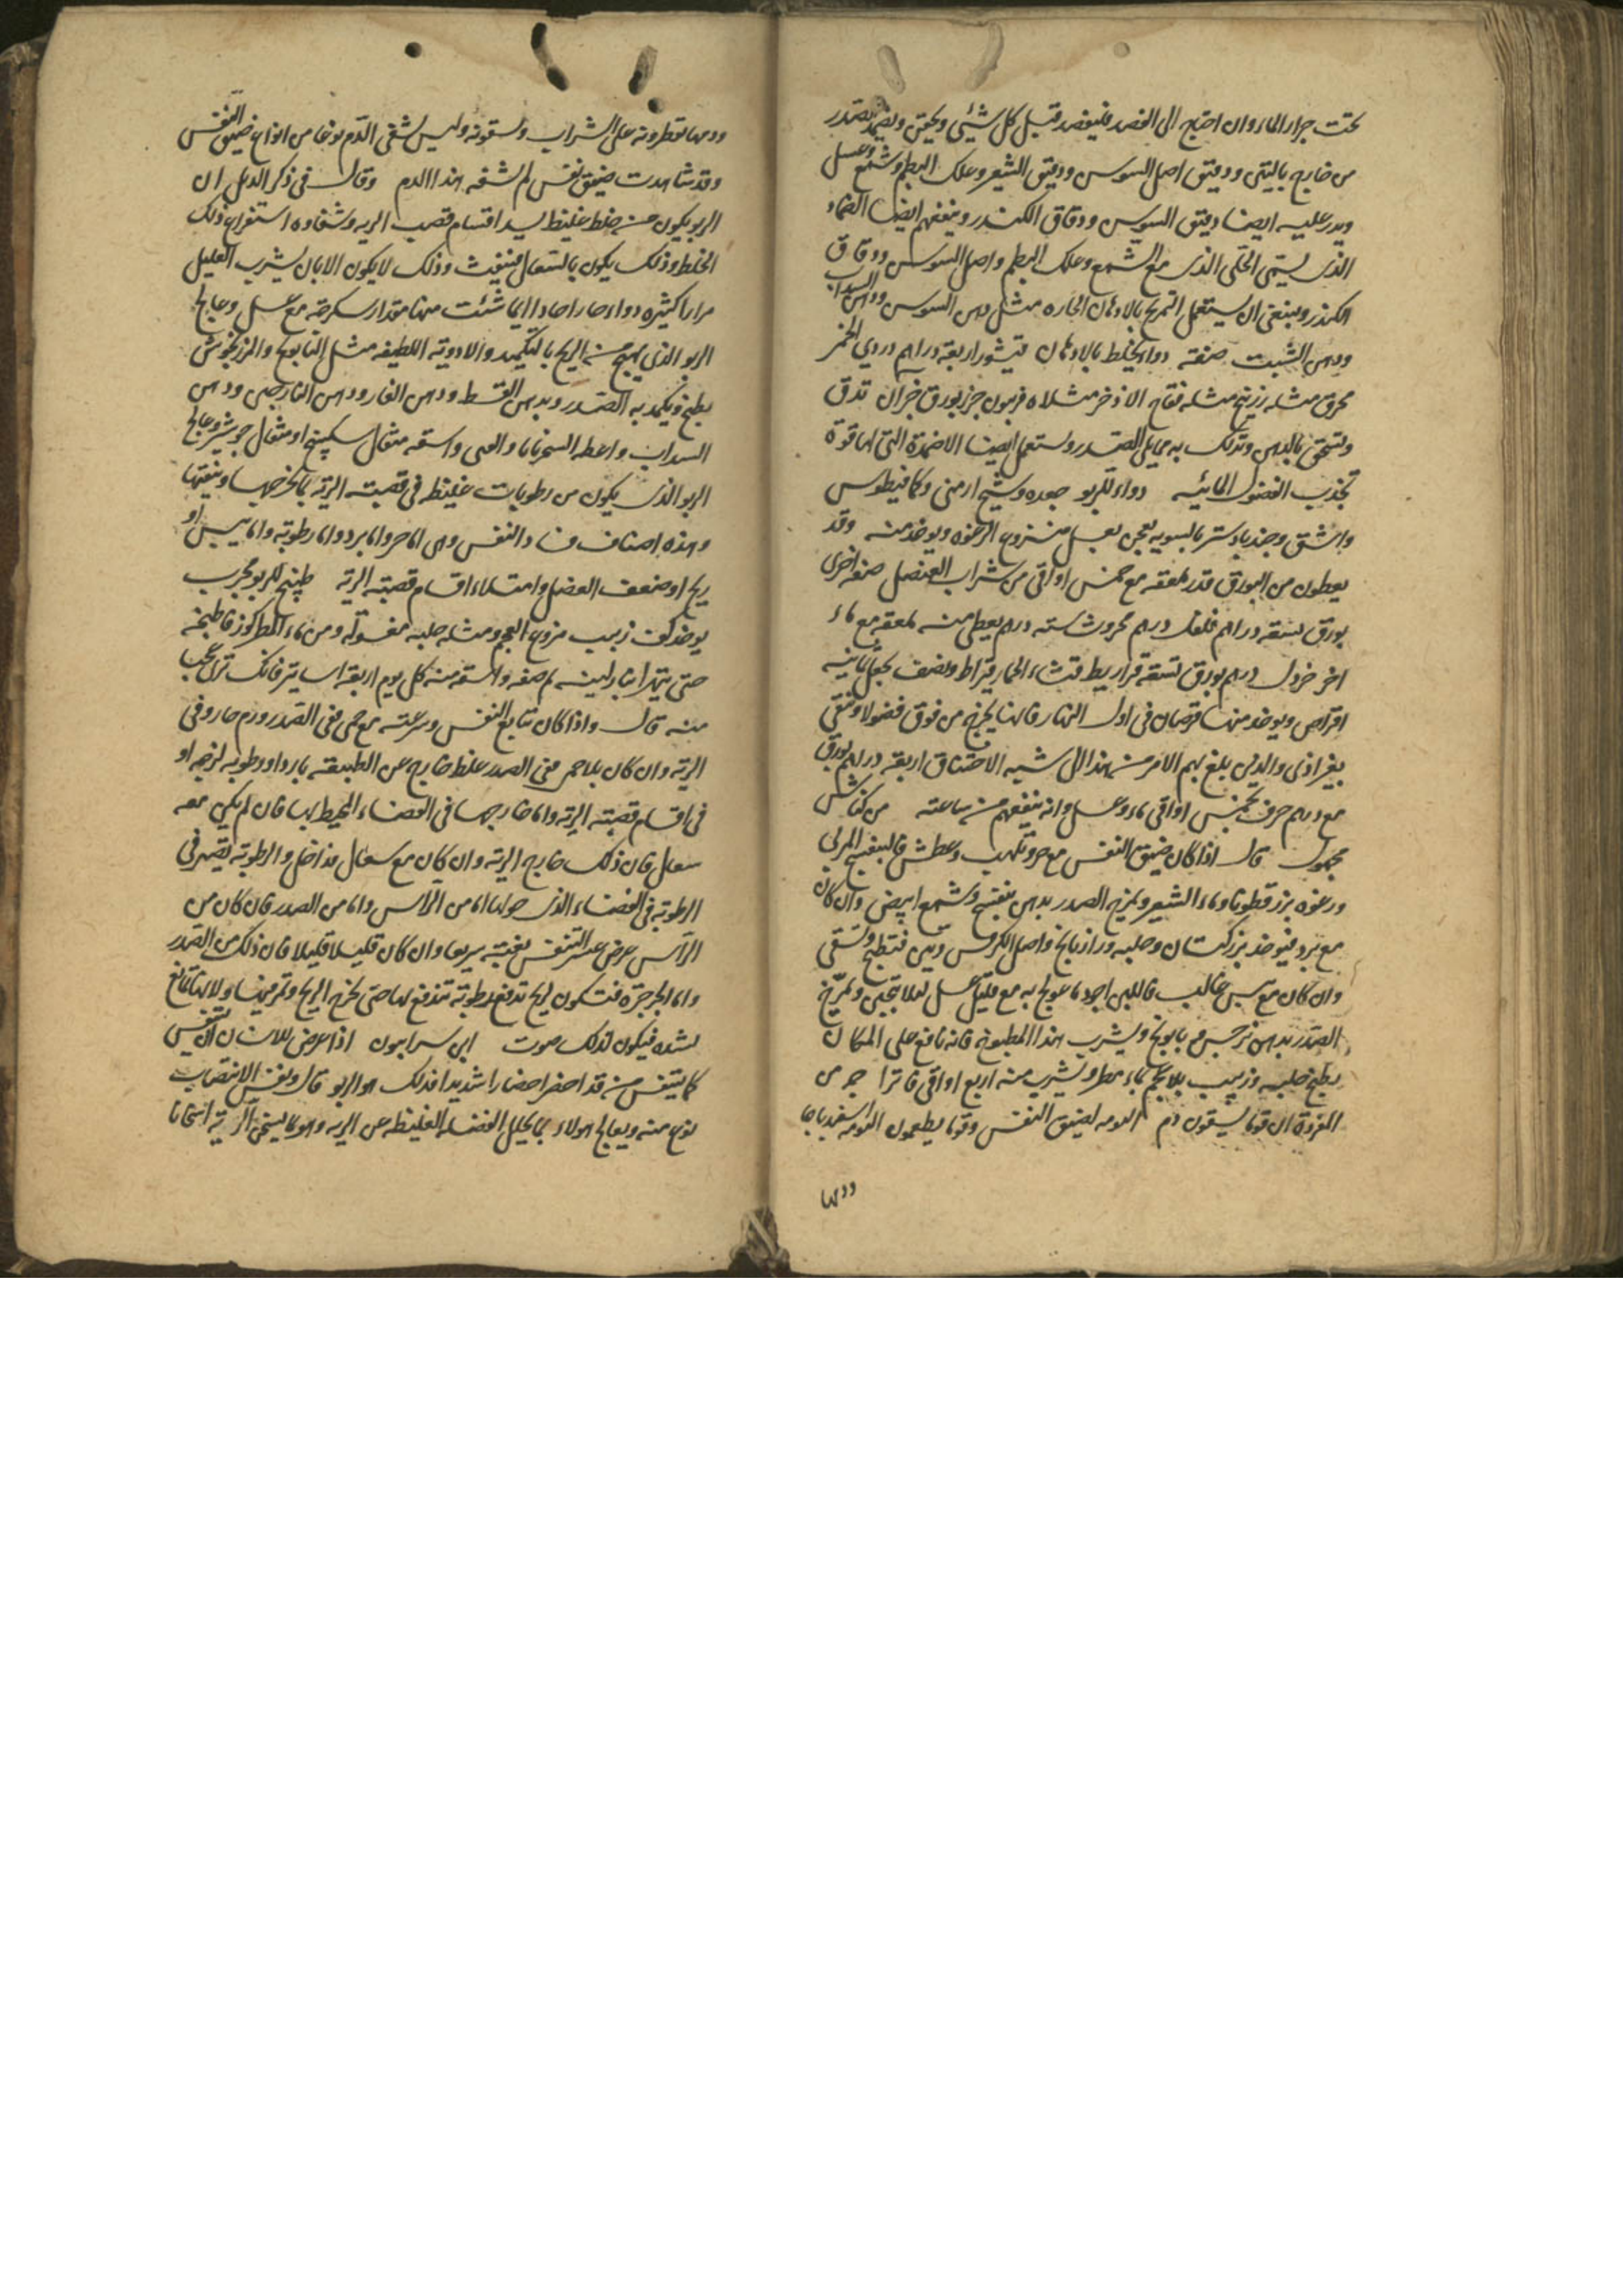 تحت جرار الماء وان احتاج الى الفصد فليفصد قبل كل شيئ ويحقن ويضمد الصدر
من خارج بالتين ودقيق اصل السوسن ودقيق الشعير وعلك البطم وشمع وعسل
ويدر عليه ايضا دقيق السوسن ودقاق الكندر وينفعهم ايضا الضماد
الذى يسمى الحكى الذى مع الشمع وعلك البطم واصل السوسن ودقاق
الكندر وينبغى ان يستعمل التمريخ بالادهان الحاره مثل دهن السوسن ودهن السداب
ودهن الشبت صفة دواء يخلط بالادهان اربعة دراهم دردي الخمر
محرق مثله زرنيخ مثله فقاح الاذخر مثلاه فربيون جز بورق جزان تدق
وتسحق بالدهن وتدلك به الصدر ويستعمل ايضا الاضمدة التى لها قوة
تجذب الفضول المائيه دواء للربو جعده وشيح ارمنى وكمافيطوس
واشق وجندبادستر بالسويه يعجن بعسل منزوع الرغوه ويوخذ منه وقد
يعطون من البورق قدر ملعقه مع خمس اواقى من شراب العنصل صفة اخرى
بورق تسعة دراهم فلفل درهم درهم يعطى منه ملعقه مع ماء
اخر خردل درهم بورق تسعة قراريط قثاء الحمار قيراط ونصف يجعل ثمانيه
اقراص ويوخذ منها قرصان فى اول النهار فانها يخرج من فوق فضولا وتنقى
بغير اذى والذين بلغ بهم الامر من هذا الى شبيه الاختناق اربعة دراهم بورق
مع درهم حرف بخمس اواقى ماء وعسل وانه ينفعهم من ساعته من كناش
مجهول قال اذا كان ضيق النفس مع حر وتلهب وعطش فالبنفسج المربى
ورغوه بزر قطونا وماء الشعير ويمرخ الصدر بدهن بنفسج وشمع ابيض وان كان
مع برد فيوخذ بزركتان وحلبه ورازيانج واصل الكرفس وتين فتطبخ وتسقى
وان كان مع يبس غالب فاللبن اجود ما عولج به مع قليل عسل لئلا يتجبن ويمرخ
الصدر بدهن نرجس وبابونج ويشرب هذا المطبوخ فانه نافع على المكان
يطبخ حلبه وزبيب بلا عجم بماء مطر ويشرب منه اربع اواقى فاترا من
المفردة ان قوما يسقون دم البومه لضيق النفس وقوما يطعمون البومه اسفيدباجا
ودمها
ودمها يقطرونه على الشراب ويسقونه وليس يشفى الدم نوعا من انواع ضيق النفس
وقد شاهدت ضيق نفس لم يشفه هذا الدم وقال فى ذكر الدمل ان
الربو يكون من خلط غليظ يسد اقسام قصب الريه وشفاوه استفراغ ذلك
الخلط وذلك يكون بالسعال فينفث وذلك لا يكون الا بان يشرب العليل
مرارا كثيره دواء حارا حادا ايما شئت منها مقدار سكرجه مع عسل وعالج
الربو الذى يهيج من الريح بالتكميد والادوية اللطيفه مثل البابونج والمرزنجوش
يطبخ ويكمد به الصدر وبدهن القسط ودهن الغار ودهن النارجين ودهن
السداب واعطه السجزنايا واسقه مثقال سكبينج او مثقال جوشير وعالج
الربو الذى يكون من رطوبات غليظه فى قصبة الرية بما يخرجها وينقيها
وهذه اصناف فساد النفس وهى اما حر واما برد واما رطوبة واما يبس او
ريح او ضعف العضل وامتلاء اقسام قصبة الرية طبيخ للربو مجرب
يوخذ كف زبيب منزوع العجم ومثله حلبه مغسولة ومن ماء المطر كوز فاطبخه
حتى ثم صفه واسقه منه كل يوم اربعة اساتير فانك ترى عجبا
منه قال واذا كان تتابع النفس وسرعته مع حمى ففى الصدر ورم حار وفى
الرية وان كان بلا حمى ففى الصدر غلظ خارج عن الطبيعة باردا ورطوبه لزجه او
فى اقسام قصبة الرية واما خارجها فى الفضاء المحيط بها فان لم يكن معه
سعال فان ذلك خارج الرية وان كان مع سعال فداخل والرطوبة تصير فى
الرطوبة فى الفضاء الذى حولها اما من الرأس واما من الصدر فان كان من
الرأس عرض عسر التنفس بغتة سريعا وان كان قليلا قليلا فان ذلك من الصدر
واما الجرجرة فتكون لريح تدفع رطوبة تندفع لها حتى تخرج الريح وتمر فيها ولانها تمانع
بشده فيكون لذلك صوت ابن سرابيون اذا عرض للانسان ان يتنفس
كما يتنفس من قد احضر احضارا شديدا فذلك هو الربو قال ونفس الانتصاب
نوع منه ويعالج هولاء بما يحلل الفضله الغليظه من الريه وهو ما يسخن الرية اسخانا